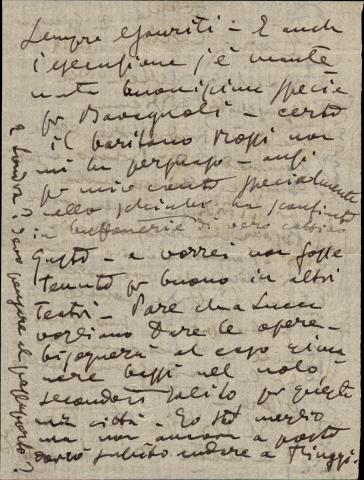 sempre esauriti - E anche
l'esecuzione s'è mante-
nuta buonissima specie
per Bavagnoli - certo
il baritono Poggi non
mi ha persuaso - anzi
per mio conto specialmente
nello Schicchi ha sconfinato
in buffonerie di vero cattivo
gusto - e vorrei non fosse
tenuto per buono in altri
teatri - Pare che a Lucca
vogliano dare le opere -
bisognerà al caso rima-
nere bassi nel nolo -
secondari solito per questa
mia città - Io sto meglio
ma non ancora a posto
dovrò subito andare a Fiuggi -
e Londra? devo pensare al passaporto?